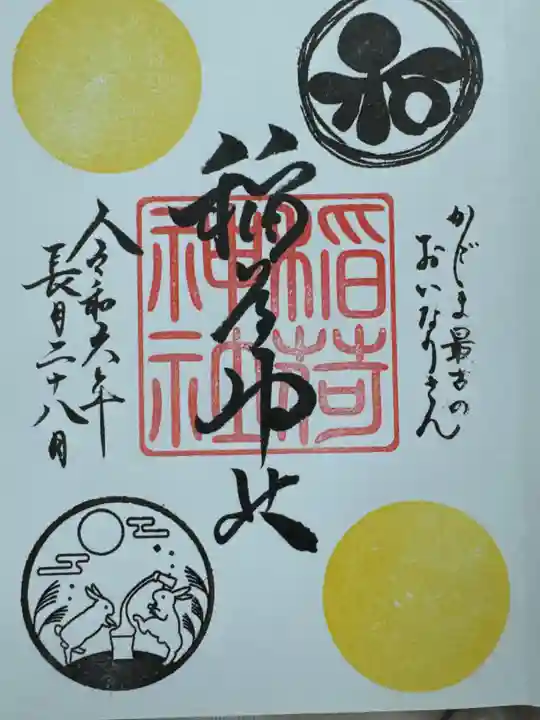 かどま最古の
おいなりさん
稲荷神社
稲荷
神社
令和六年
長月二十八日